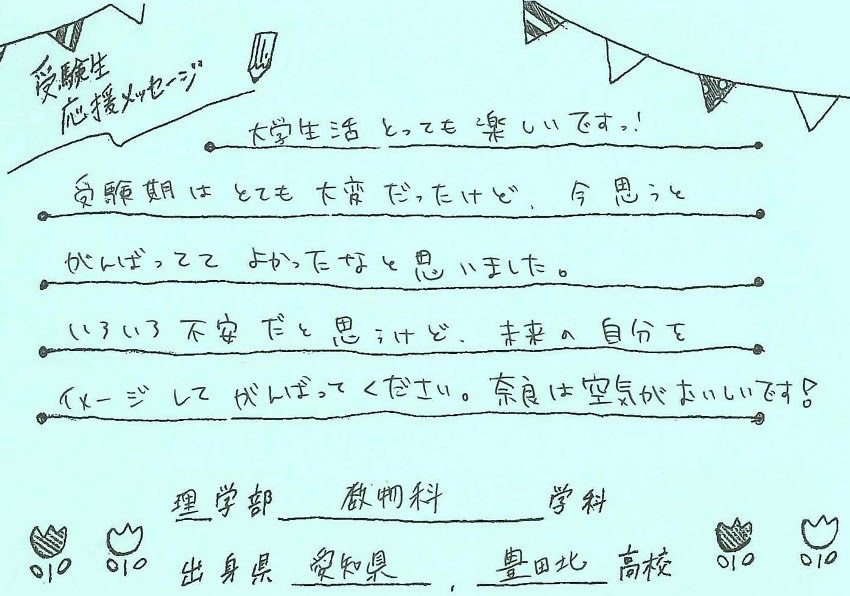 受験生
応援メッセージ
大学生活とっても楽しいですっ!
受験期はとても大変だったけど、今思うと
がんばっててよかったなと思いました。
いろいろ不安だと思うけど、未来の自分を
イメージしてがんばってください。奈良は空気がおいしいです!
理学部 数物科 学科
出身県 愛知県 , 豊田北 高校